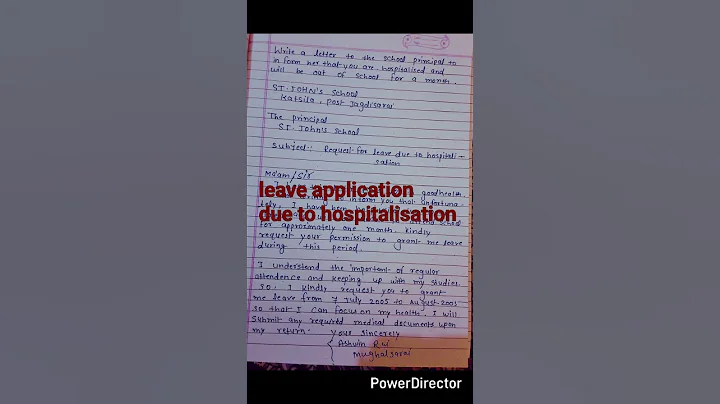 Write a letter to the school principal to
inform her that you are hospitalised and
will be out of school for a month.
ST. JOHN'S School
Katsila, Post Jagdisarai
The principal
ST. John's School
Subject:- Request for leave due to hospitali-
sation
Ma'am/Sir
good health.
inform you that unfortuna-
leave application
due to hospitalisation
for approximately one month. Kindly
request your permission to grant me leave
during this period.
I understand the important of regular
attendence and keeping up with my studies.
so, I kindly request you to grant
me leave from 7 July 2005 to August 2005
so that I can focus on my health. I will
submit any required medical documents upon
my return.
Your Sincerely
Ashwin
Mughalsarai
PowerDirector